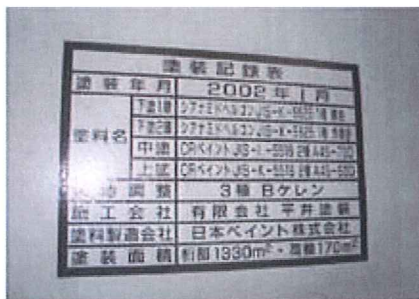 塗装記録表
塗装年月 2002年1月
塗料名
下塗1層 シアナミドヘルゴンJIS-K-5625
下塗2層 シアナミドヘルゴンJIS-K-5625
中塗 CRペイントJIS-K-
上塗 CRペイントJIS-K-
調整 3種Bケレン
施工会社 有限会社 平井塗装
塗料製造会社 日本ペイント株式会社
塗装面積 1330m²・高欄170m²